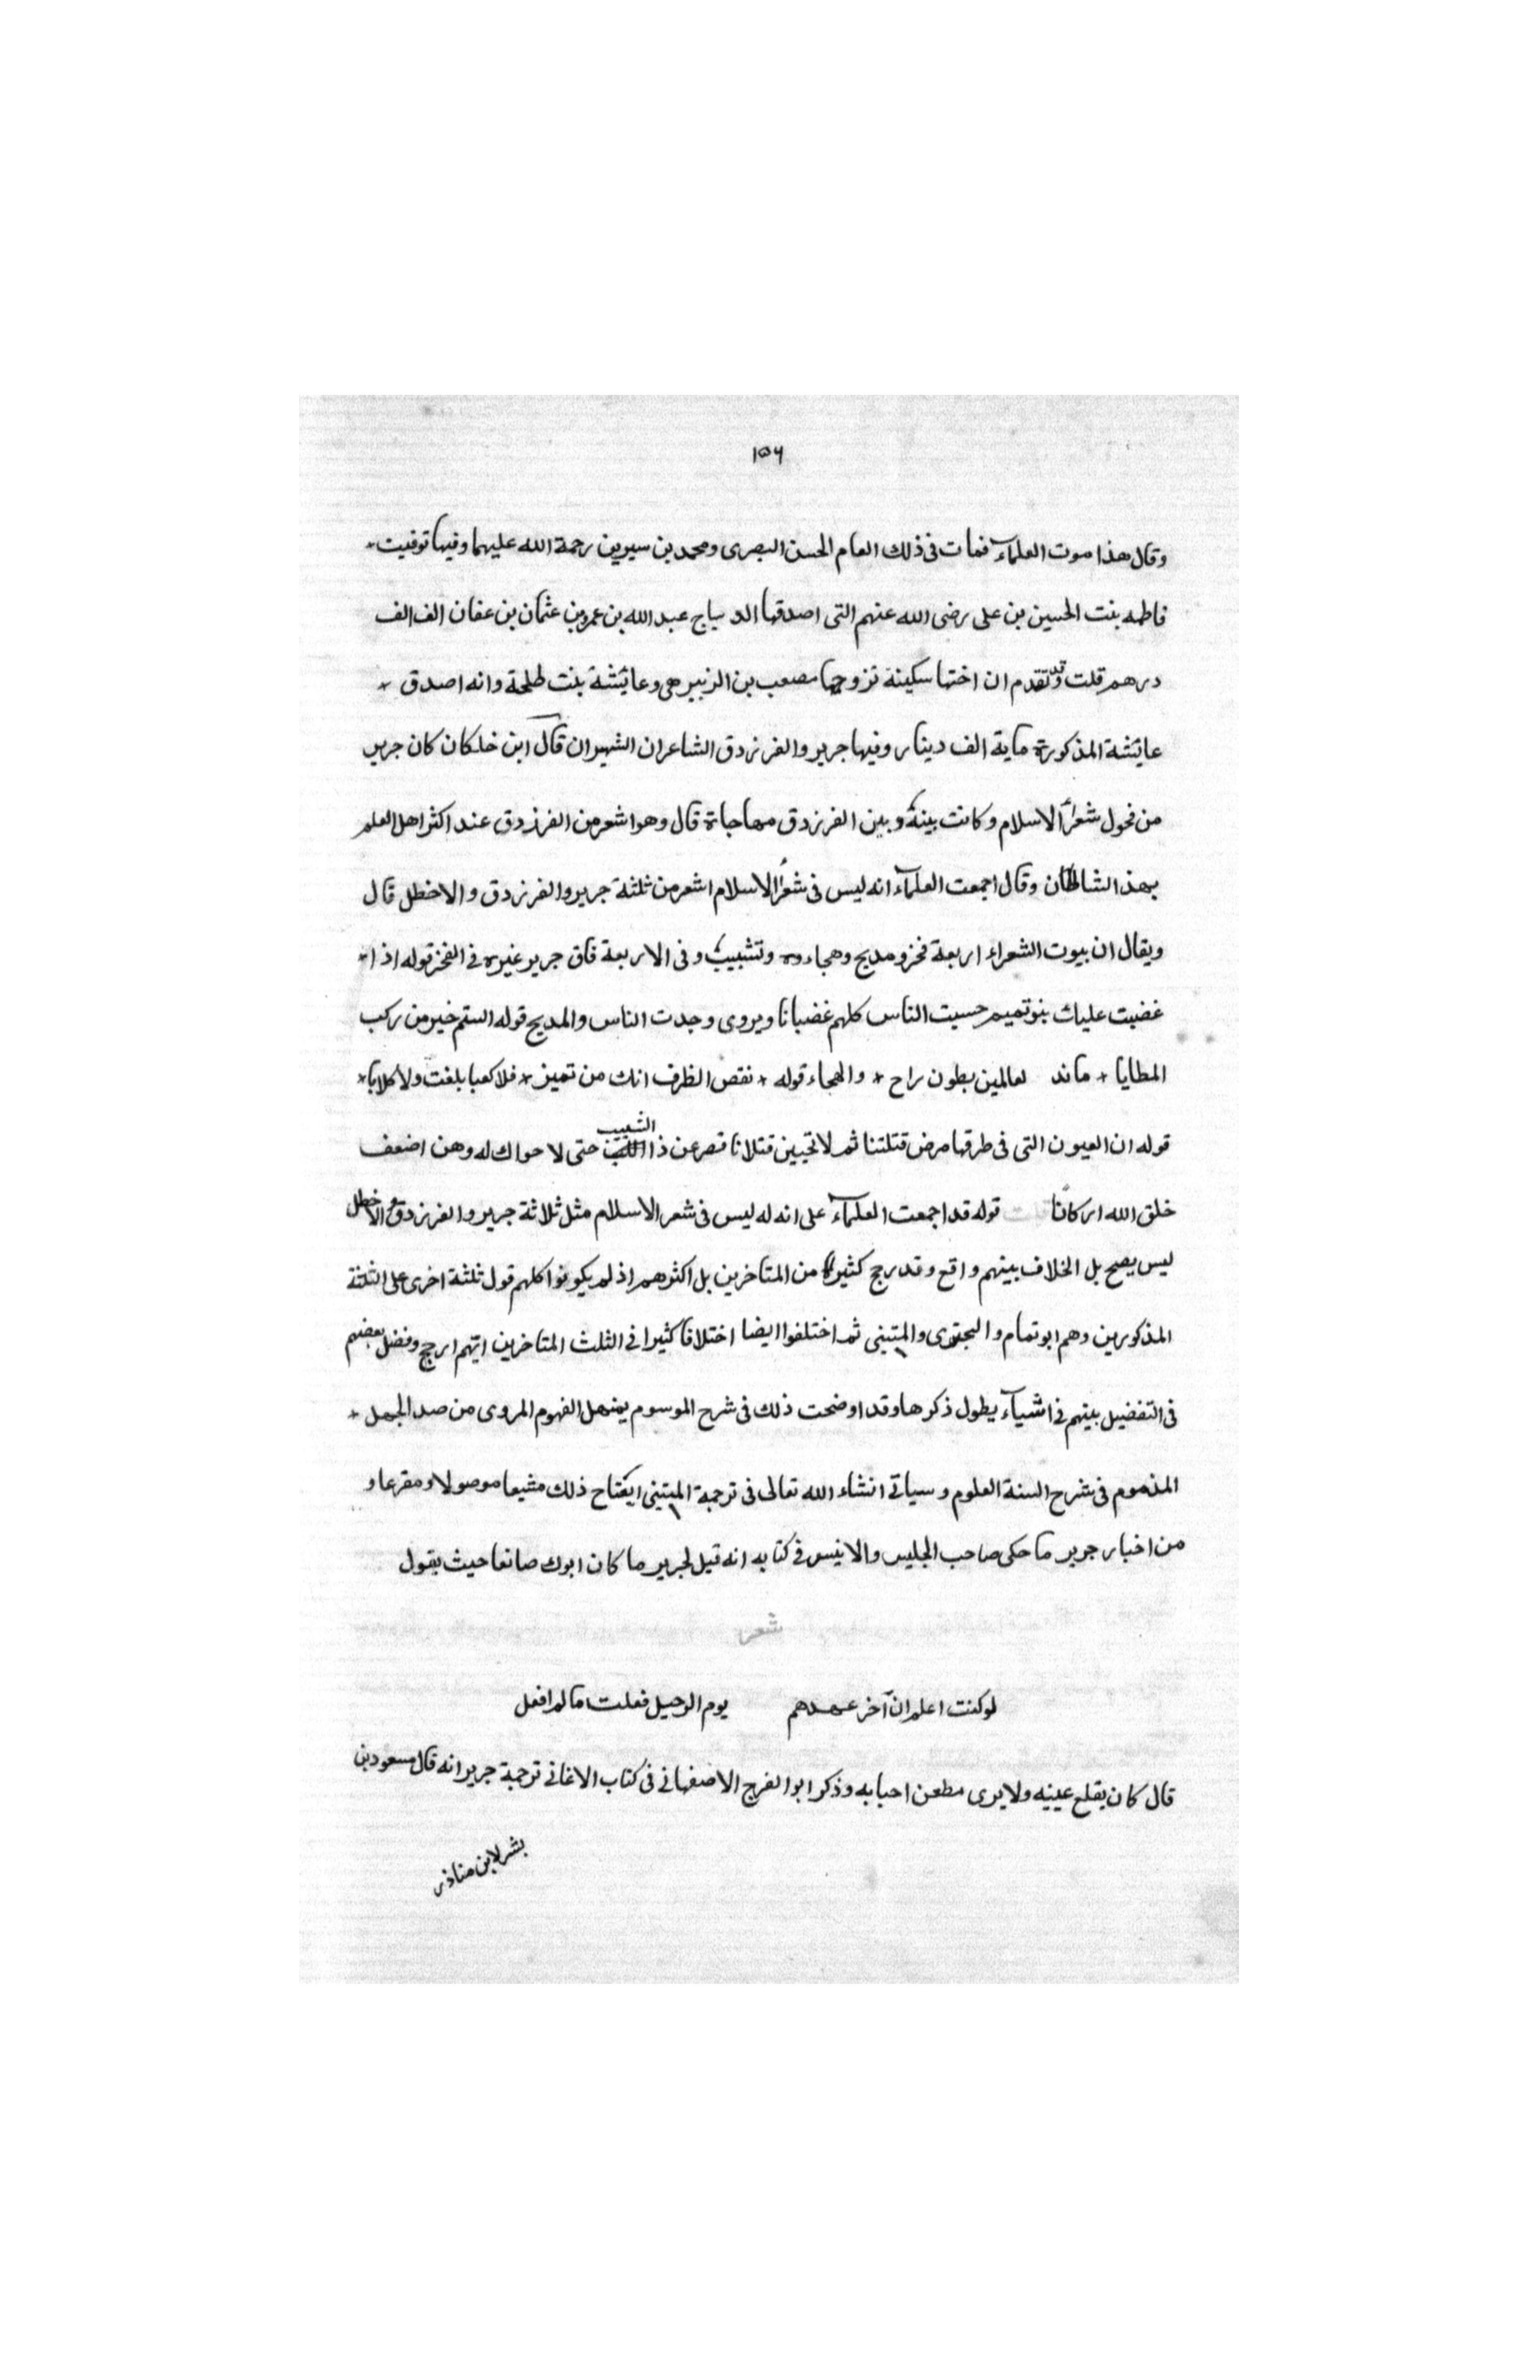 ١٥٦
وقال هذا موت العلماء فمات فى ذلك العام الحسن البصرى ومحمد بن سيرين رحمة الله عليهما وفيها توفيت
فاطمه بنت الحسين بن على رضى الله عنهم التى اصدقها الديباج عبد الله بن عمرو بن عثمان بن عفان الف الف
درهم قلت وقد تقدم ان اختها سكينة تزوجها مصعب بن الزبير هى وعائشة بنت طلحة وانه اصدق
عائشة المذكورة ماية الف دينار وفيها جرير والفرزدق الشاعران الشهيران قال ابن خلكان كان جرير
من فحول شعراء الاسلام وكانت بينه وبين الفرزدق مهاجاة قال وهو اشعر من الفرزدق عند اكثر اهل العلم
بهذا الشان وقال اجمعت العلماء انه ليس فى شعراء الاسلام اشعر من ثلثة جرير والفرزدق والاخطل قال
ويقال ان بيوت الشعراء اربعة فخر ومديح وهجاء وتشبيب وفى الاربعة فاق جرير غيره فى الفخر قوله اذا
غضبت عليك بنو تميم حسبت الناس كلهم غضبانا ويروى وجدت الناس والمديح قوله الستم خير من ركب
المطايا * ماند لعالمين بطون راح * والهجاء قوله * نقص الظرف انك من تميز * فلا كعبا بلغت ولا كلابا *
قوله ان العيون التى فى طرفها مرض قتلتنا ثم لا تحيين قتلانا قصرعن ذا اللب التشبيب حتى لا حواك له وهن اضعف
خلق الله اركانا قلت قوله قد اجمعت العلماء على انه له ليس فى شعر الاسلام مثل ثلاثة جرير والفرزدق والاخطل
ليس يصح بل الخلاف بينهم واقع وقد رجح كثير من المتاخرين بل اكثرهم اذ لم يكونوا كلهم قول ثلثة اخرى على الثلثة
المذكورين وهم ابو تمام والبحترى والمتنبى ثم اختلفوا ايضا اختلافا كثيرا فى الثلث المتاخرين ايهم ارجح وفضل بعضهم
فى التفضيل بينهم فى اشياء يطول ذكرها وقد اوضحت ذلك فى شرح الموسوم بمنهل الفهوم المروى من صد الجهل *
المذموم فى شرح السنة العلوم وسياتى انشاء الله تعالى فى ترجمة المتنبى ذلك مشيعا موصولا ومقرعا و
من اخبار جرير ما حكى صاحب الجليس والانيس فى كتابه انه قيل لجرير ما كان ابوك صانعا حيث يقول
شعر
لو كنت اعلم ان آخر عهدهم يوم الرحيل فعلت ما لم افعل
قال كان يقلع عينيه ولا يرى مظعن احبابه وذكر ابو الفرج الاصفهانى فى كتاب الاغانى ترجمة جرير انه قال مسعود بن
بشر لابن مناذر